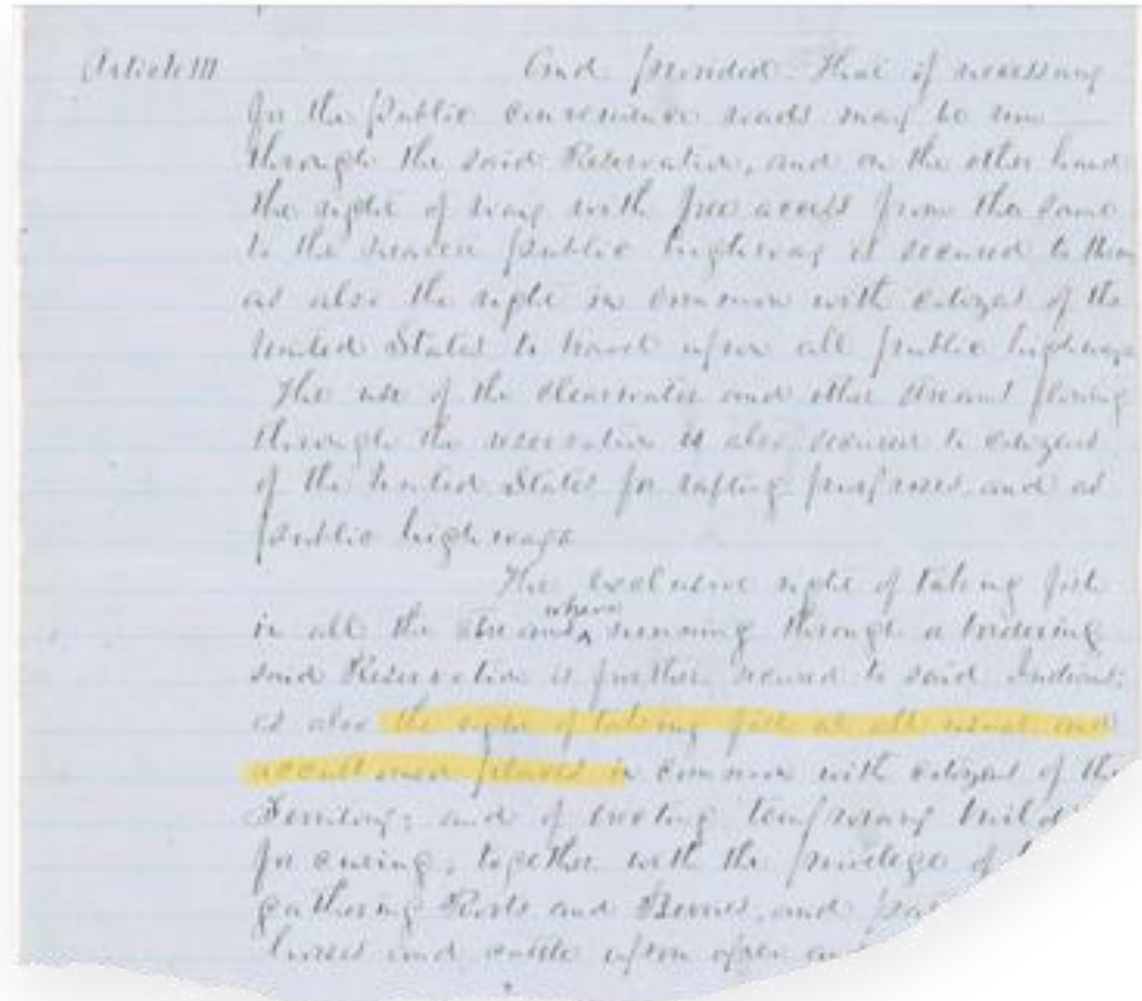 Article III And provided. That if necessary
for the public convenience roads may be run
through the said Reservation, and on the other hand
the right of way with free access from the same
to the nearest public highway is secured to them
as also the right in common with citizens of the
United States to travel upon all public highways
The use of the Clearwater and other streams flowing
through the reservation is also secured to citizens
of the United States for rafting purposes, and as
public highways
The exclusive right of taking fish
in all the streams where running through or bordering
said Reservation is further secured to said Indians;
as also the right of taking fish at all usual and
accustomed places in common with citizens of the
Territory; and of erecting temporary build
for curing, together with the privilege of
gathering Roots and Berries, and
horses and cattle upon open and